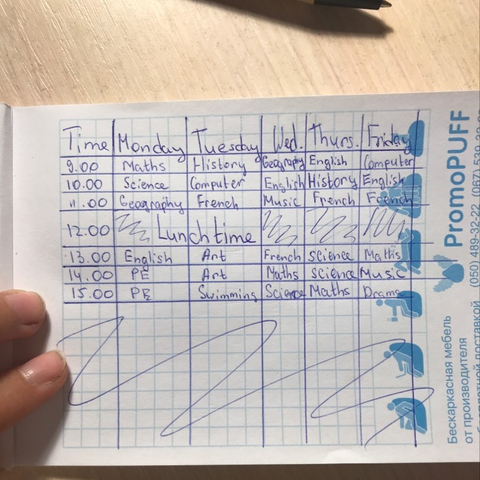 Time Monday Tuesday Wed. Thurs. Friday
9.00 Maths History Geography English Computer
10.00 Science Computer English History English
11.00 Geography French Music French French
12.00 Lunch time
13.00 English Art French Science Maths
14.00 PE Art Maths Science Music
15.00 PE Swimming Science Maths Drama
PromoPUFF
(050) 489-32-22 (067) 539
Бескаркасная мебель
от производителя
бесплатной доставкой